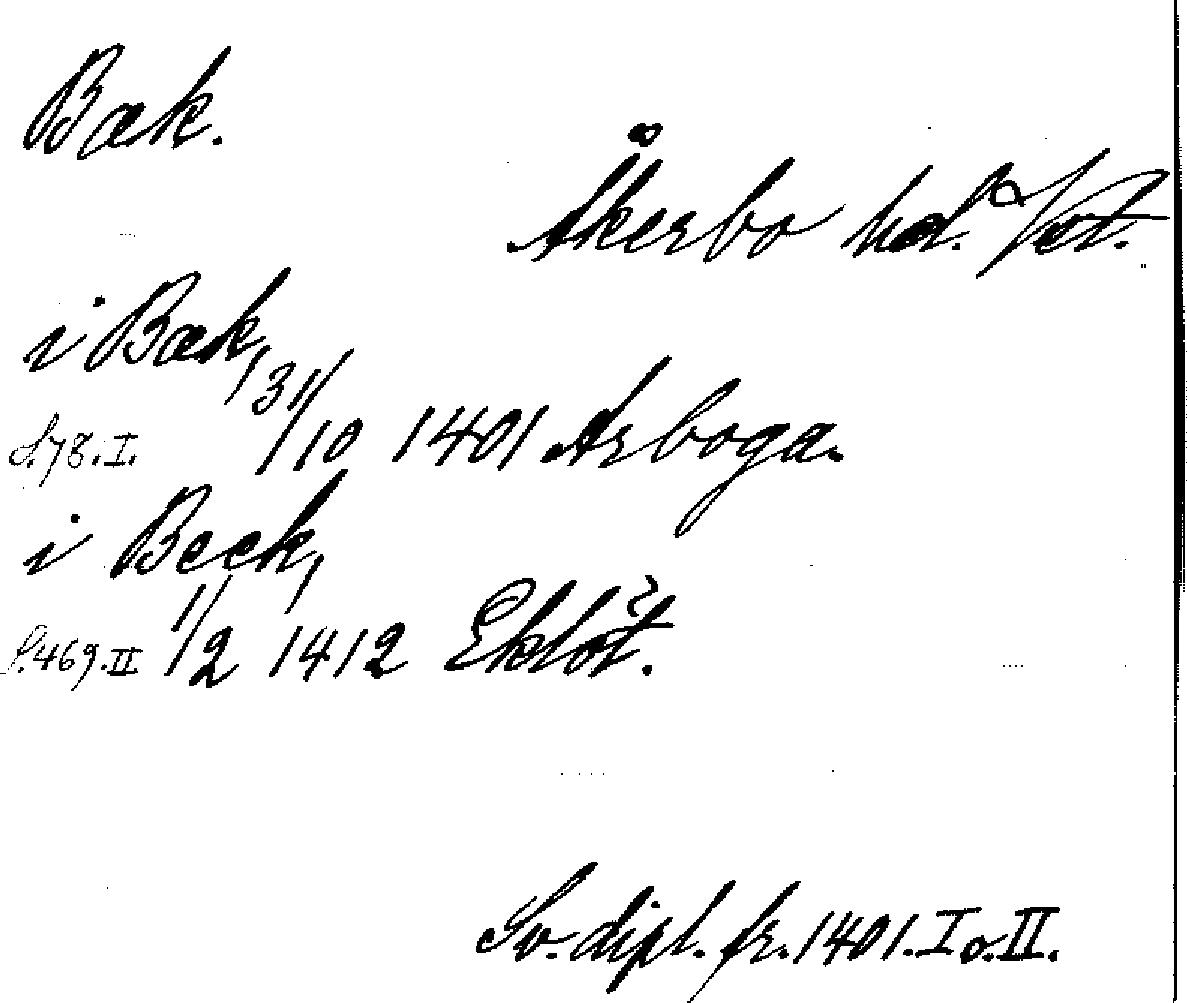 Bæk.
Åkerbo hd. Vst.
i Bæk,
S.78.I. 31/10 1401 Arboga.
i Beck,
S.469.II 1/2 1412 Eklöt.
Sv. dipl. fr. 1401. I o. II.